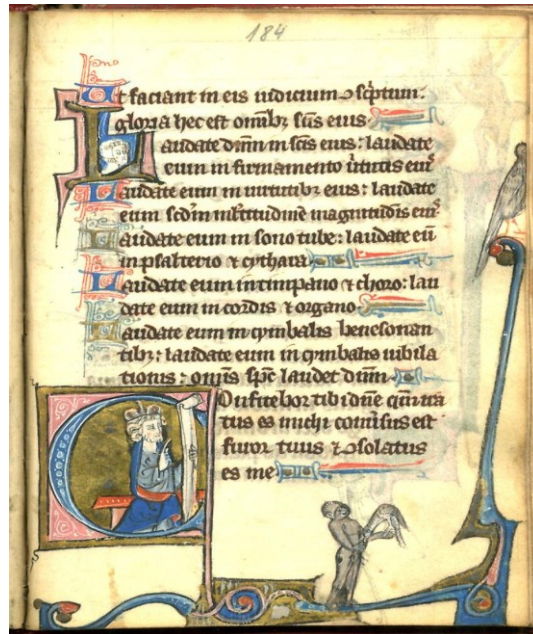 184
Ut faciant in eis iudicium ⁊ scͥptum.
gloria hec est omīb; sc̄is eius
Laudate dn̄m in sc̄is eius: laudate
eum in firmamento uͥtutis eiꝰ
Laudate eum in uirtutib; eius: laudate
eum scd'm mltitudinē magnitudīs eiꝰ
Laudate eum in sono tube: laudate eū
in psalterio ⁊ cythara
Laudate eum in timpano ⁊ choro: lau
date eum in cordis ⁊ organo
Laudate eum in cymbalis benesonan
tib;: laudate eum in cymbalis iubila
tionis: omīs sp̄c laudet dn̄m
Confitebor tibi dn̄e qm̄ ira
tus es michi conūsus est
furor tuus ⁊ ꝯsolatus
es me